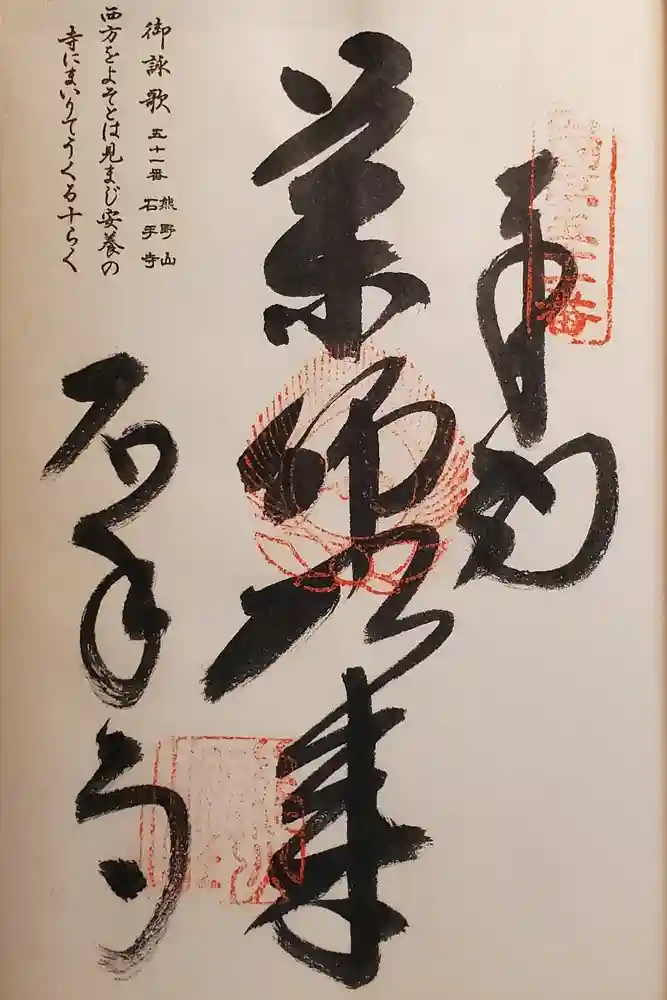 奉納
薬師如来
御詠歌 五十一番 熊野山 石手寺
西方をよそとは見まじ安養の
寺にまいりてうくる十らく
石手寺